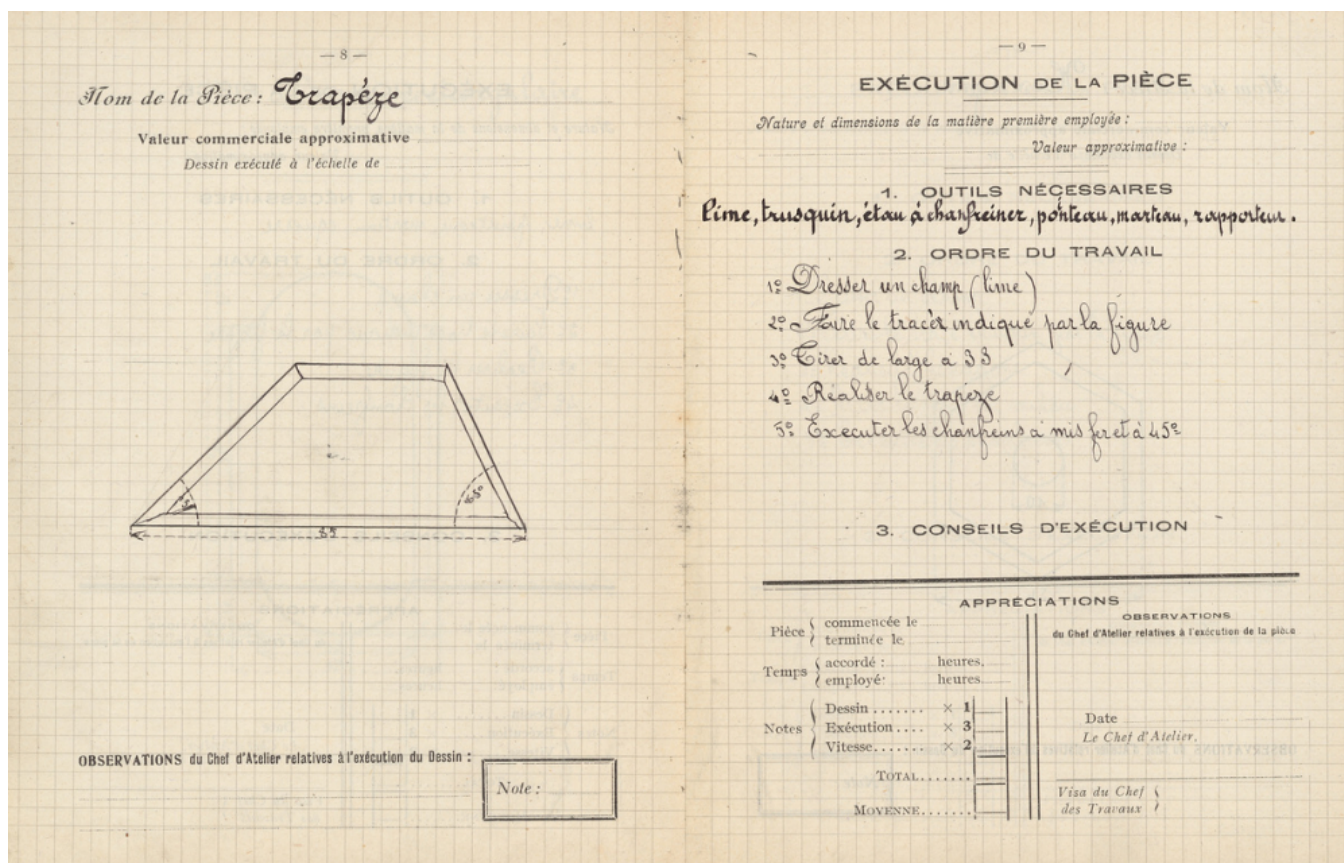 — 8 —
Nom de la Pièce : Trapéze
Valeur commerciale approximative
Dessin exécuté à l'échelle de
65°
85
OBSERVATIONS du Chef d'Atelier relatives à l'exécution du Dessin :
Note :
— 9 —
EXÉCUTION DE LA PIÈCE
Nature et dimensions de la matière première employée :
Valeur approximative :
1. OUTILS NÉCESSAIRES
lime, trusquin, étau à chanfreiner, pointeau, marteau, rapporteur.
2. ORDRE DU TRAVAIL
1º Dresser un champ (lime)
2º Faire le tracér indiqué par la figure
3º Tirer de large à 33
4º Réaliser le trapèze
5º Executer les chanfreins à mis fer et à 45º
3. CONSEILS D'EXÉCUTION
APPRÉCIATIONS
Pièce { commencée le
terminée le
Temps { accordé : heures.
employé : heures
Notes { Dessin ....... × 1
Exécution ..... × 3
Vitesse ....... × 2
TOTAL .......
MOYENNE .......
OBSERVATIONS
du Chef d'Atelier relatives à l'exécution de la pièce
Date
Le Chef d'Atelier,
Visa du Chef {
des Travaux